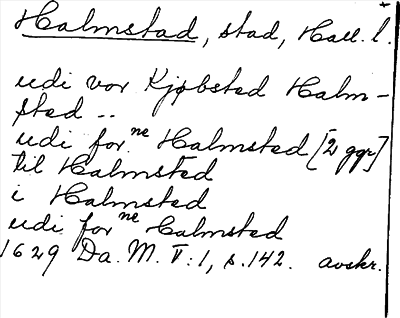 Halmstad, stad, Hall. l.
udi vor Kjøbsted Halm-
sted ..
udi for^ne Halmsted [2 ggr]
til Halmsted
i Halmsted
udi for^ne Halmsted
1629 Da. M. V:1, s. 142. avskr.